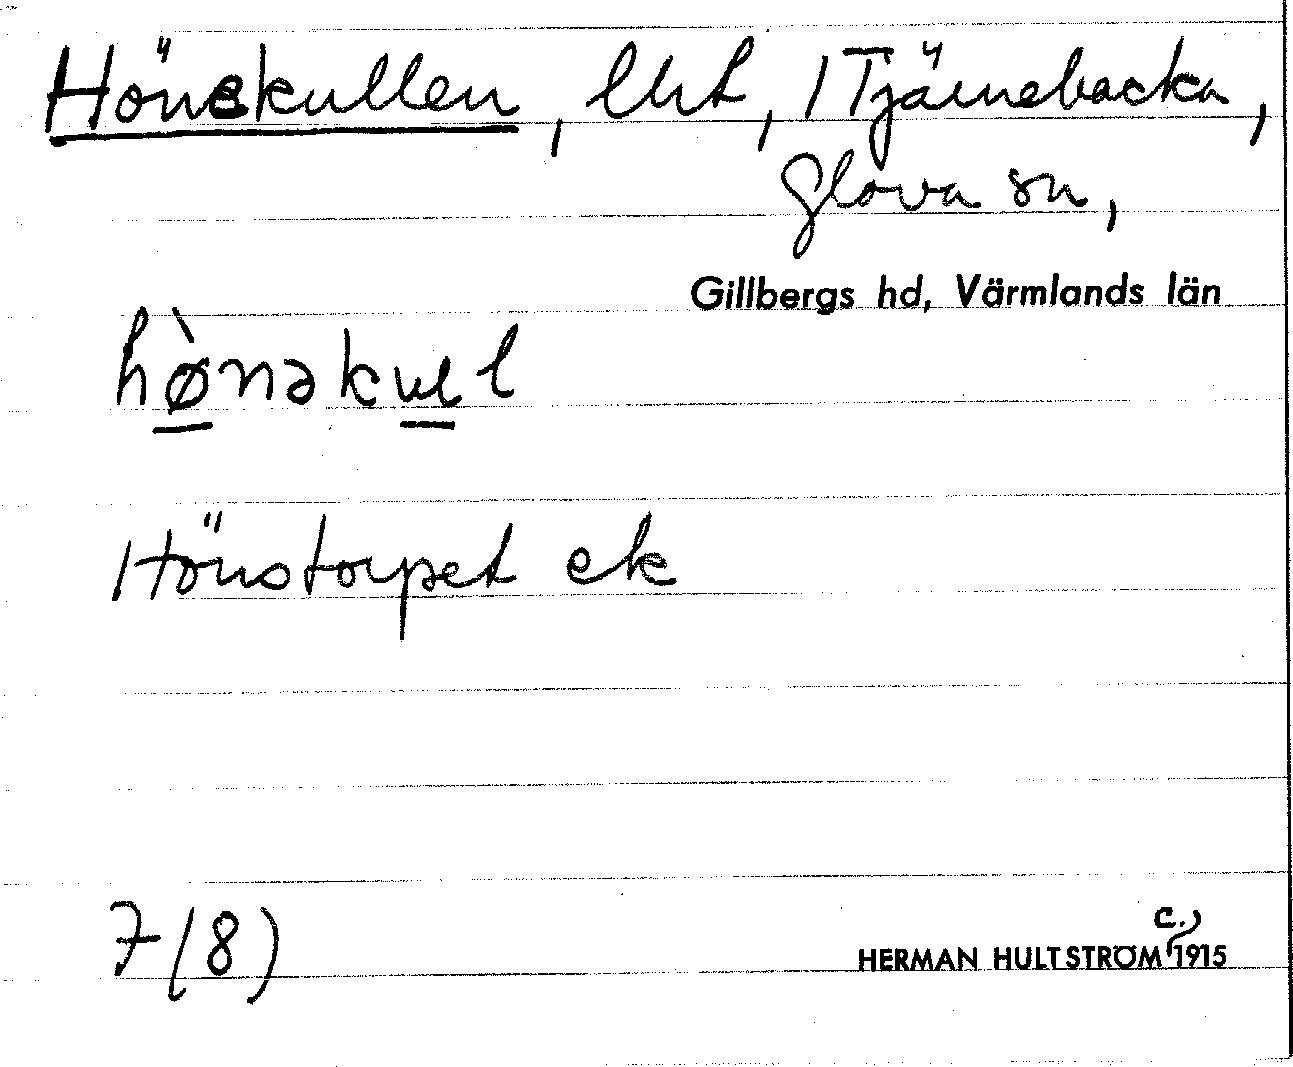 Hönekullen, lht, i Tjärnebacka,
Glava sn,
Gillbergs hd, Värmlands län
hø̀nəkul
Hönstorpet ek
7 (8)
c.
HERMAN HULTSTRÖM 1915